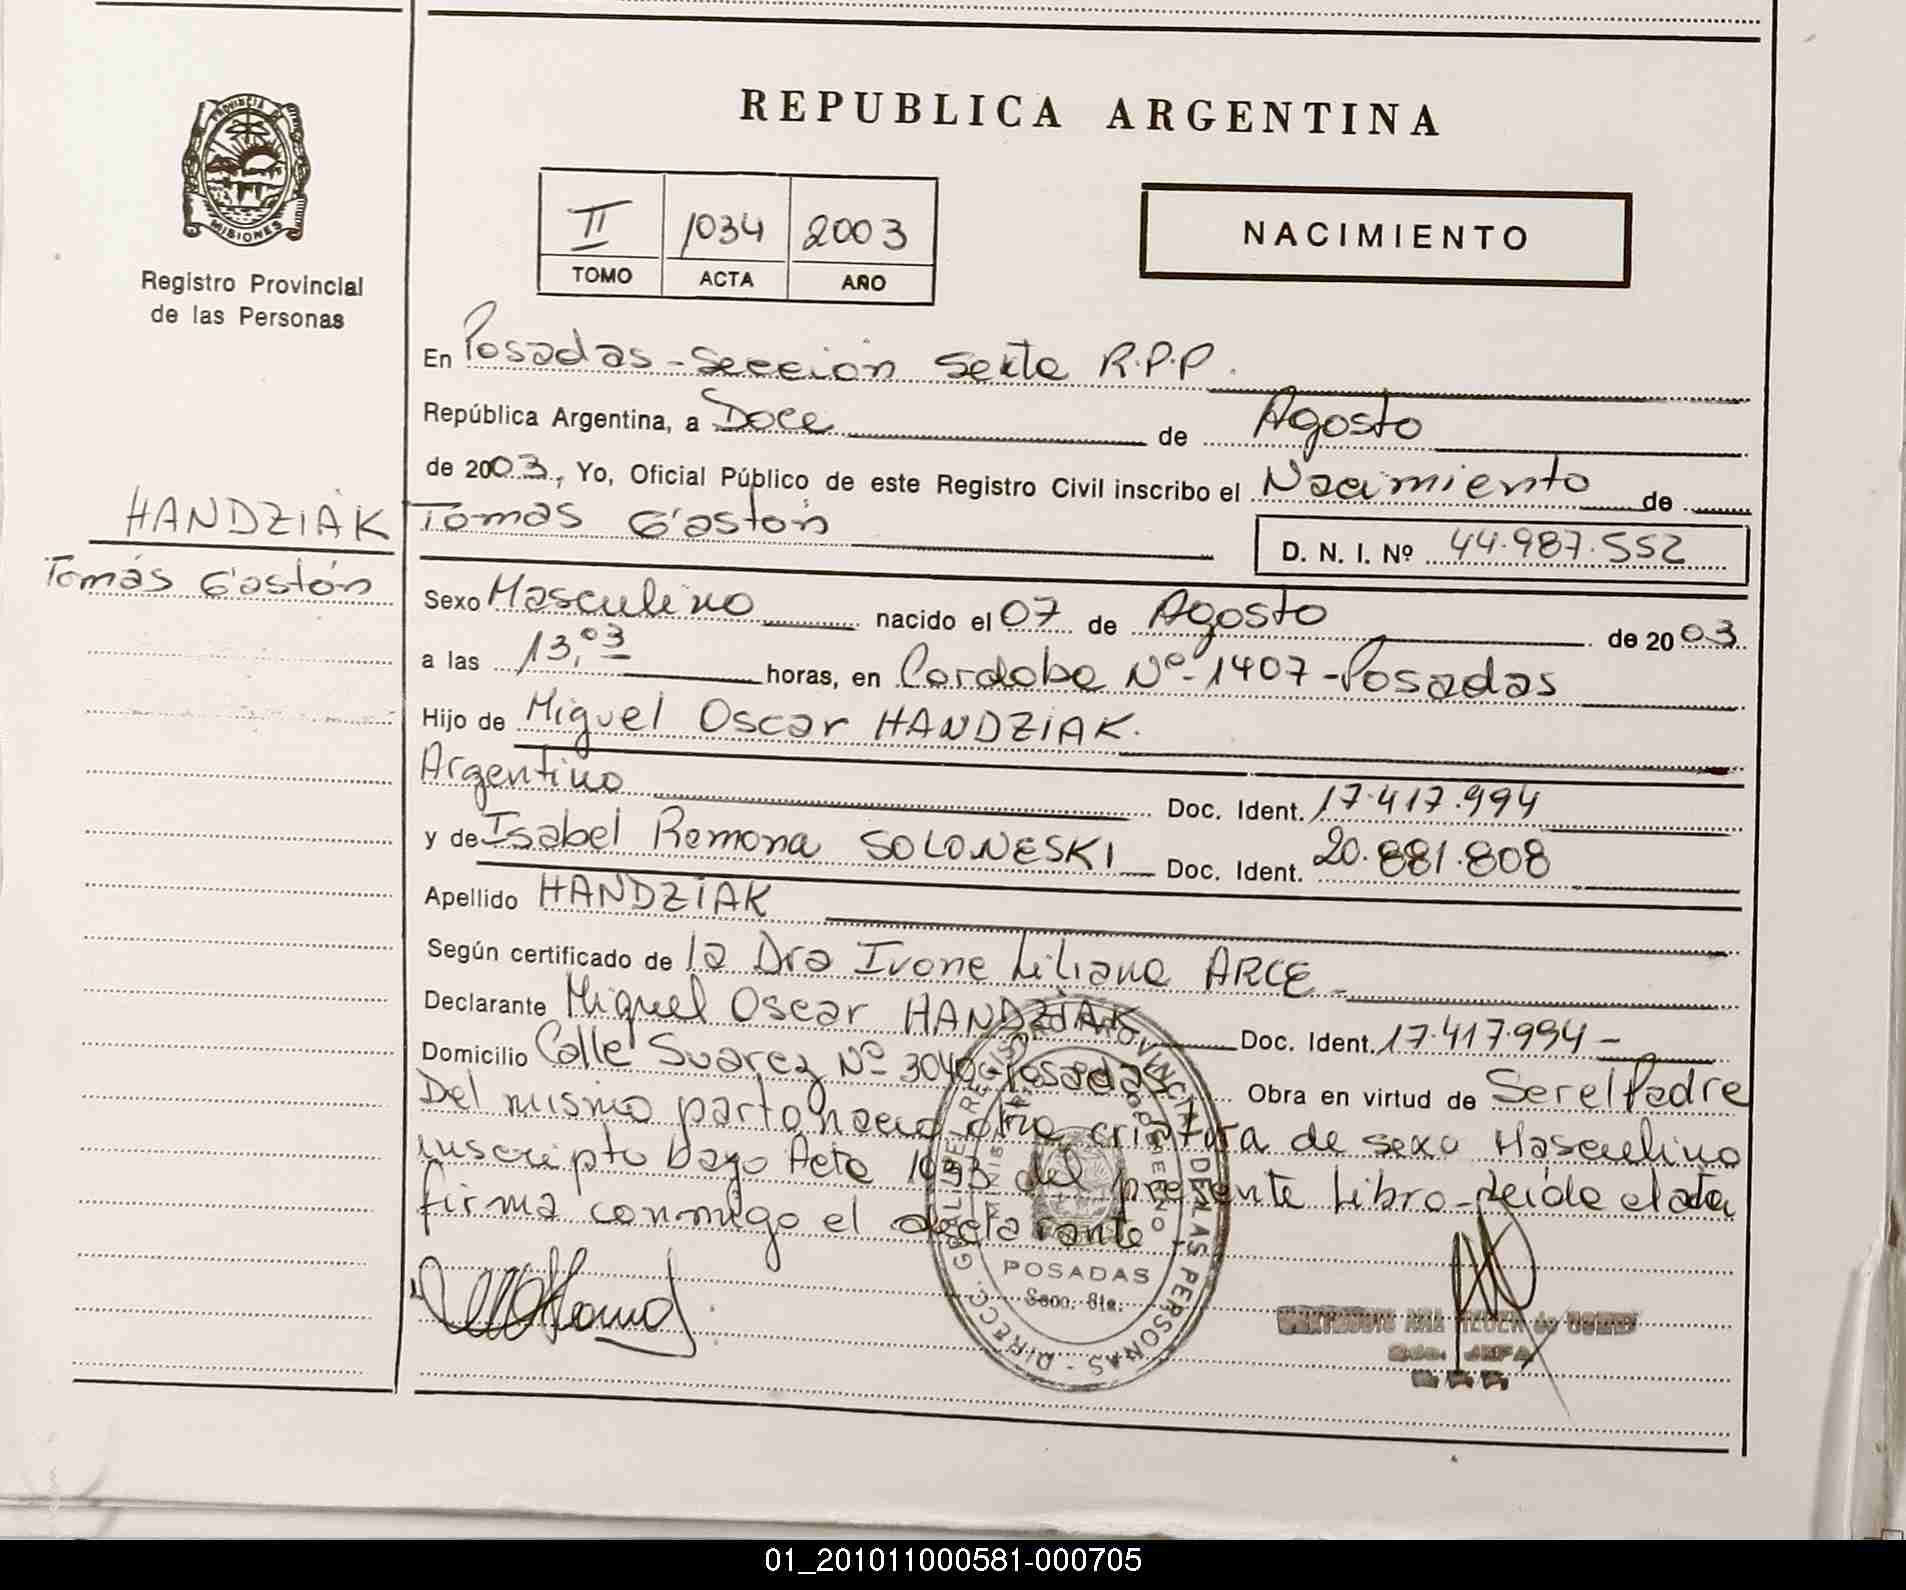 REPUBLICA ARGENTINA
PROVINCIA DE
MISIONES
Registro Provincial
de las Personas
II 1034 2003
TOMO ACTA AÑO
NACIMIENTO
En Posadas - Sección Sexta R.P.P.
República Argentina, a Doce de Agosto
de 2003, Yo, Oficial Público de este Registro Civil inscribo el Nacimiento de
HANDZIAK
Tomás Gastón
Tomás Gastón
D. N. I. Nº 44.987.552
Sexo Masculino nacido el 07 de Agosto de 2003
a las 13,03 horas, en Cordoba Nº 1407 - Posadas
Hijo de Miguel Oscar HANDZIAK.
Argentino Doc. Ident. 17.417.994
y de Isabel Ramona SOLONESKI Doc. Ident. 20.881.808
Apellido HANDZIAK
Según certificado de la Dra Ivone Liliana ARCE -
Declarante Miguel Oscar HANDZIAK Doc. Ident. 17.417.994 -
Domicilio Calle Suarez Nº 3040 - Posadas Obra en virtud de Ser el Padre
Del mismo parto nacio otra criatura de sexo Masculino
inscripto bajo Acta 1033 del presente Libro - Leída el acta
firma conmigo el declarante
DIRECC. GRAL. DEL REGISTRO PROVINCIAL DE LAS PERSONAS
POSADAS
Secc. 6ta.
JEFA
01_201011000581-000705